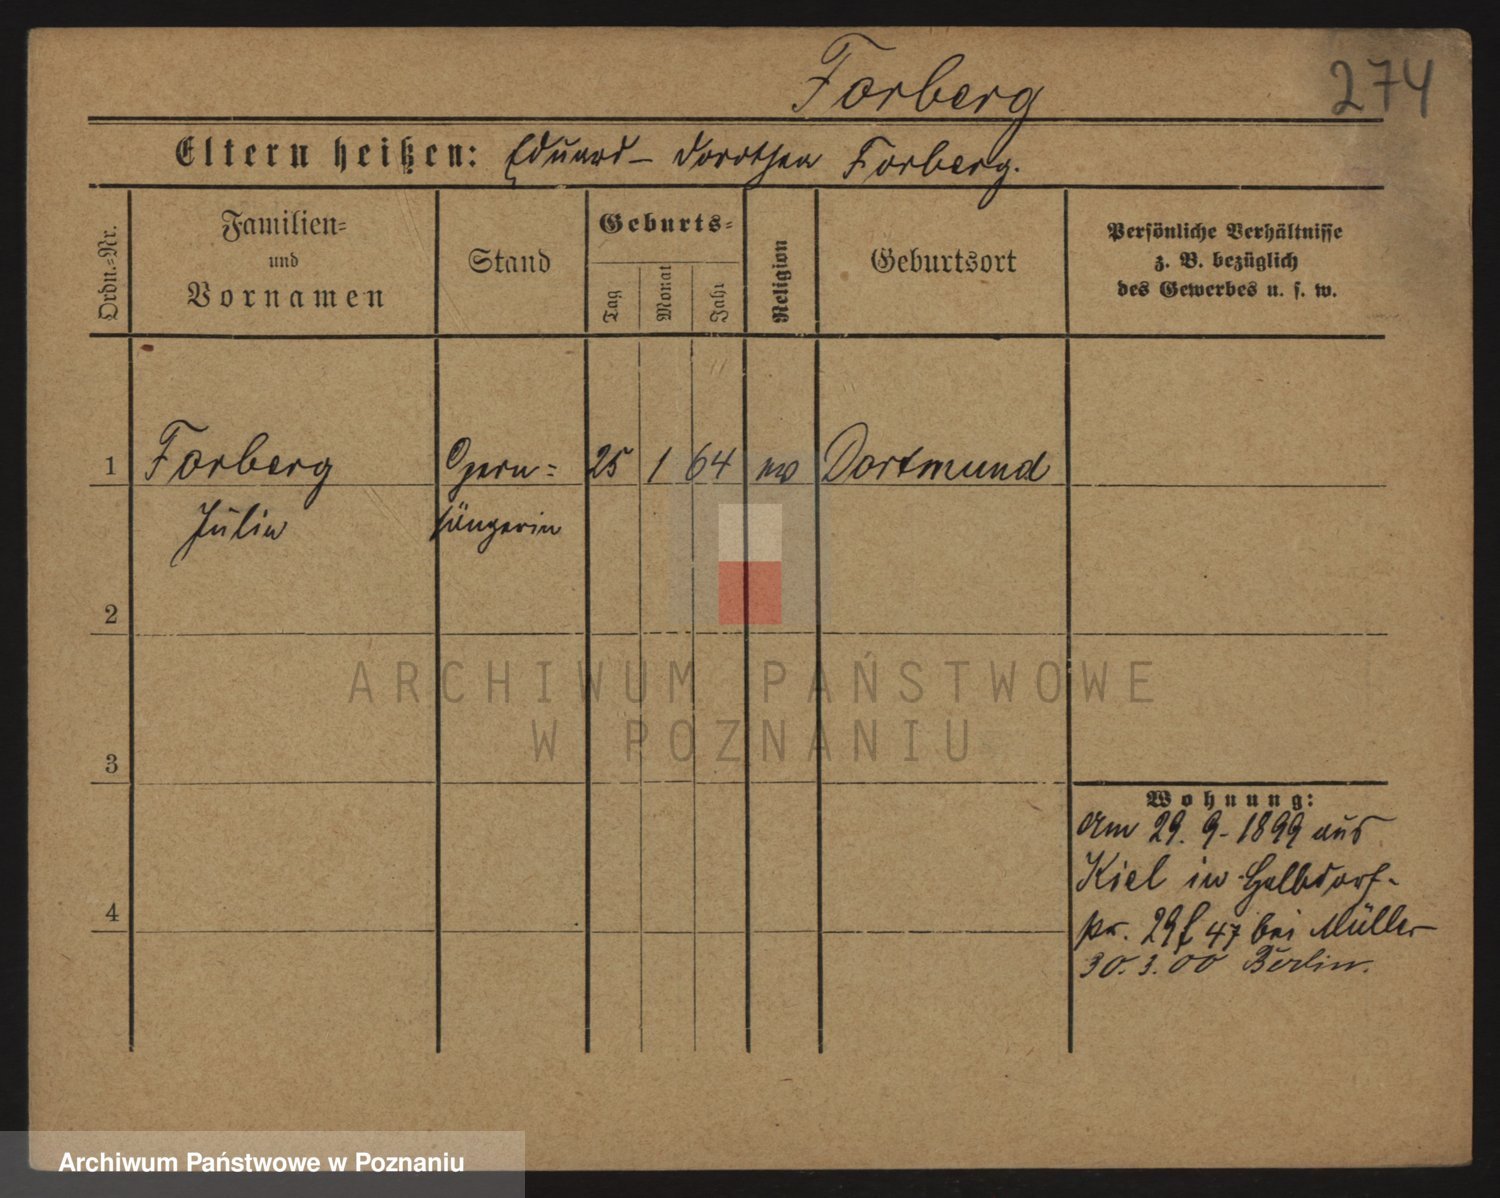 Forberg
274
Eltern heißen: Eduard - Dorothea Forberg.
Ordn.-Nr.
Familien-
und
Vornamen
Stand
Geburts-
Tag
Monat
Jahr
Religion
Geburtsort
Persönliche Verhältnisse
z. B. bezüglich
des Gewerbes u. s. w.
1 Forberg Opern- 25 1 64 ev Dortmund
Julie sängerin
2
3
4
Wohnung:
Am 29. 9. 1899 aus
Kiel in Halbdorf-
29 47 bei Müller
30.3.00 Berlin.
ARCHIWUM PAŃSTWOWE
W POZNANIU
Archiwum Państwowe w Poznaniu